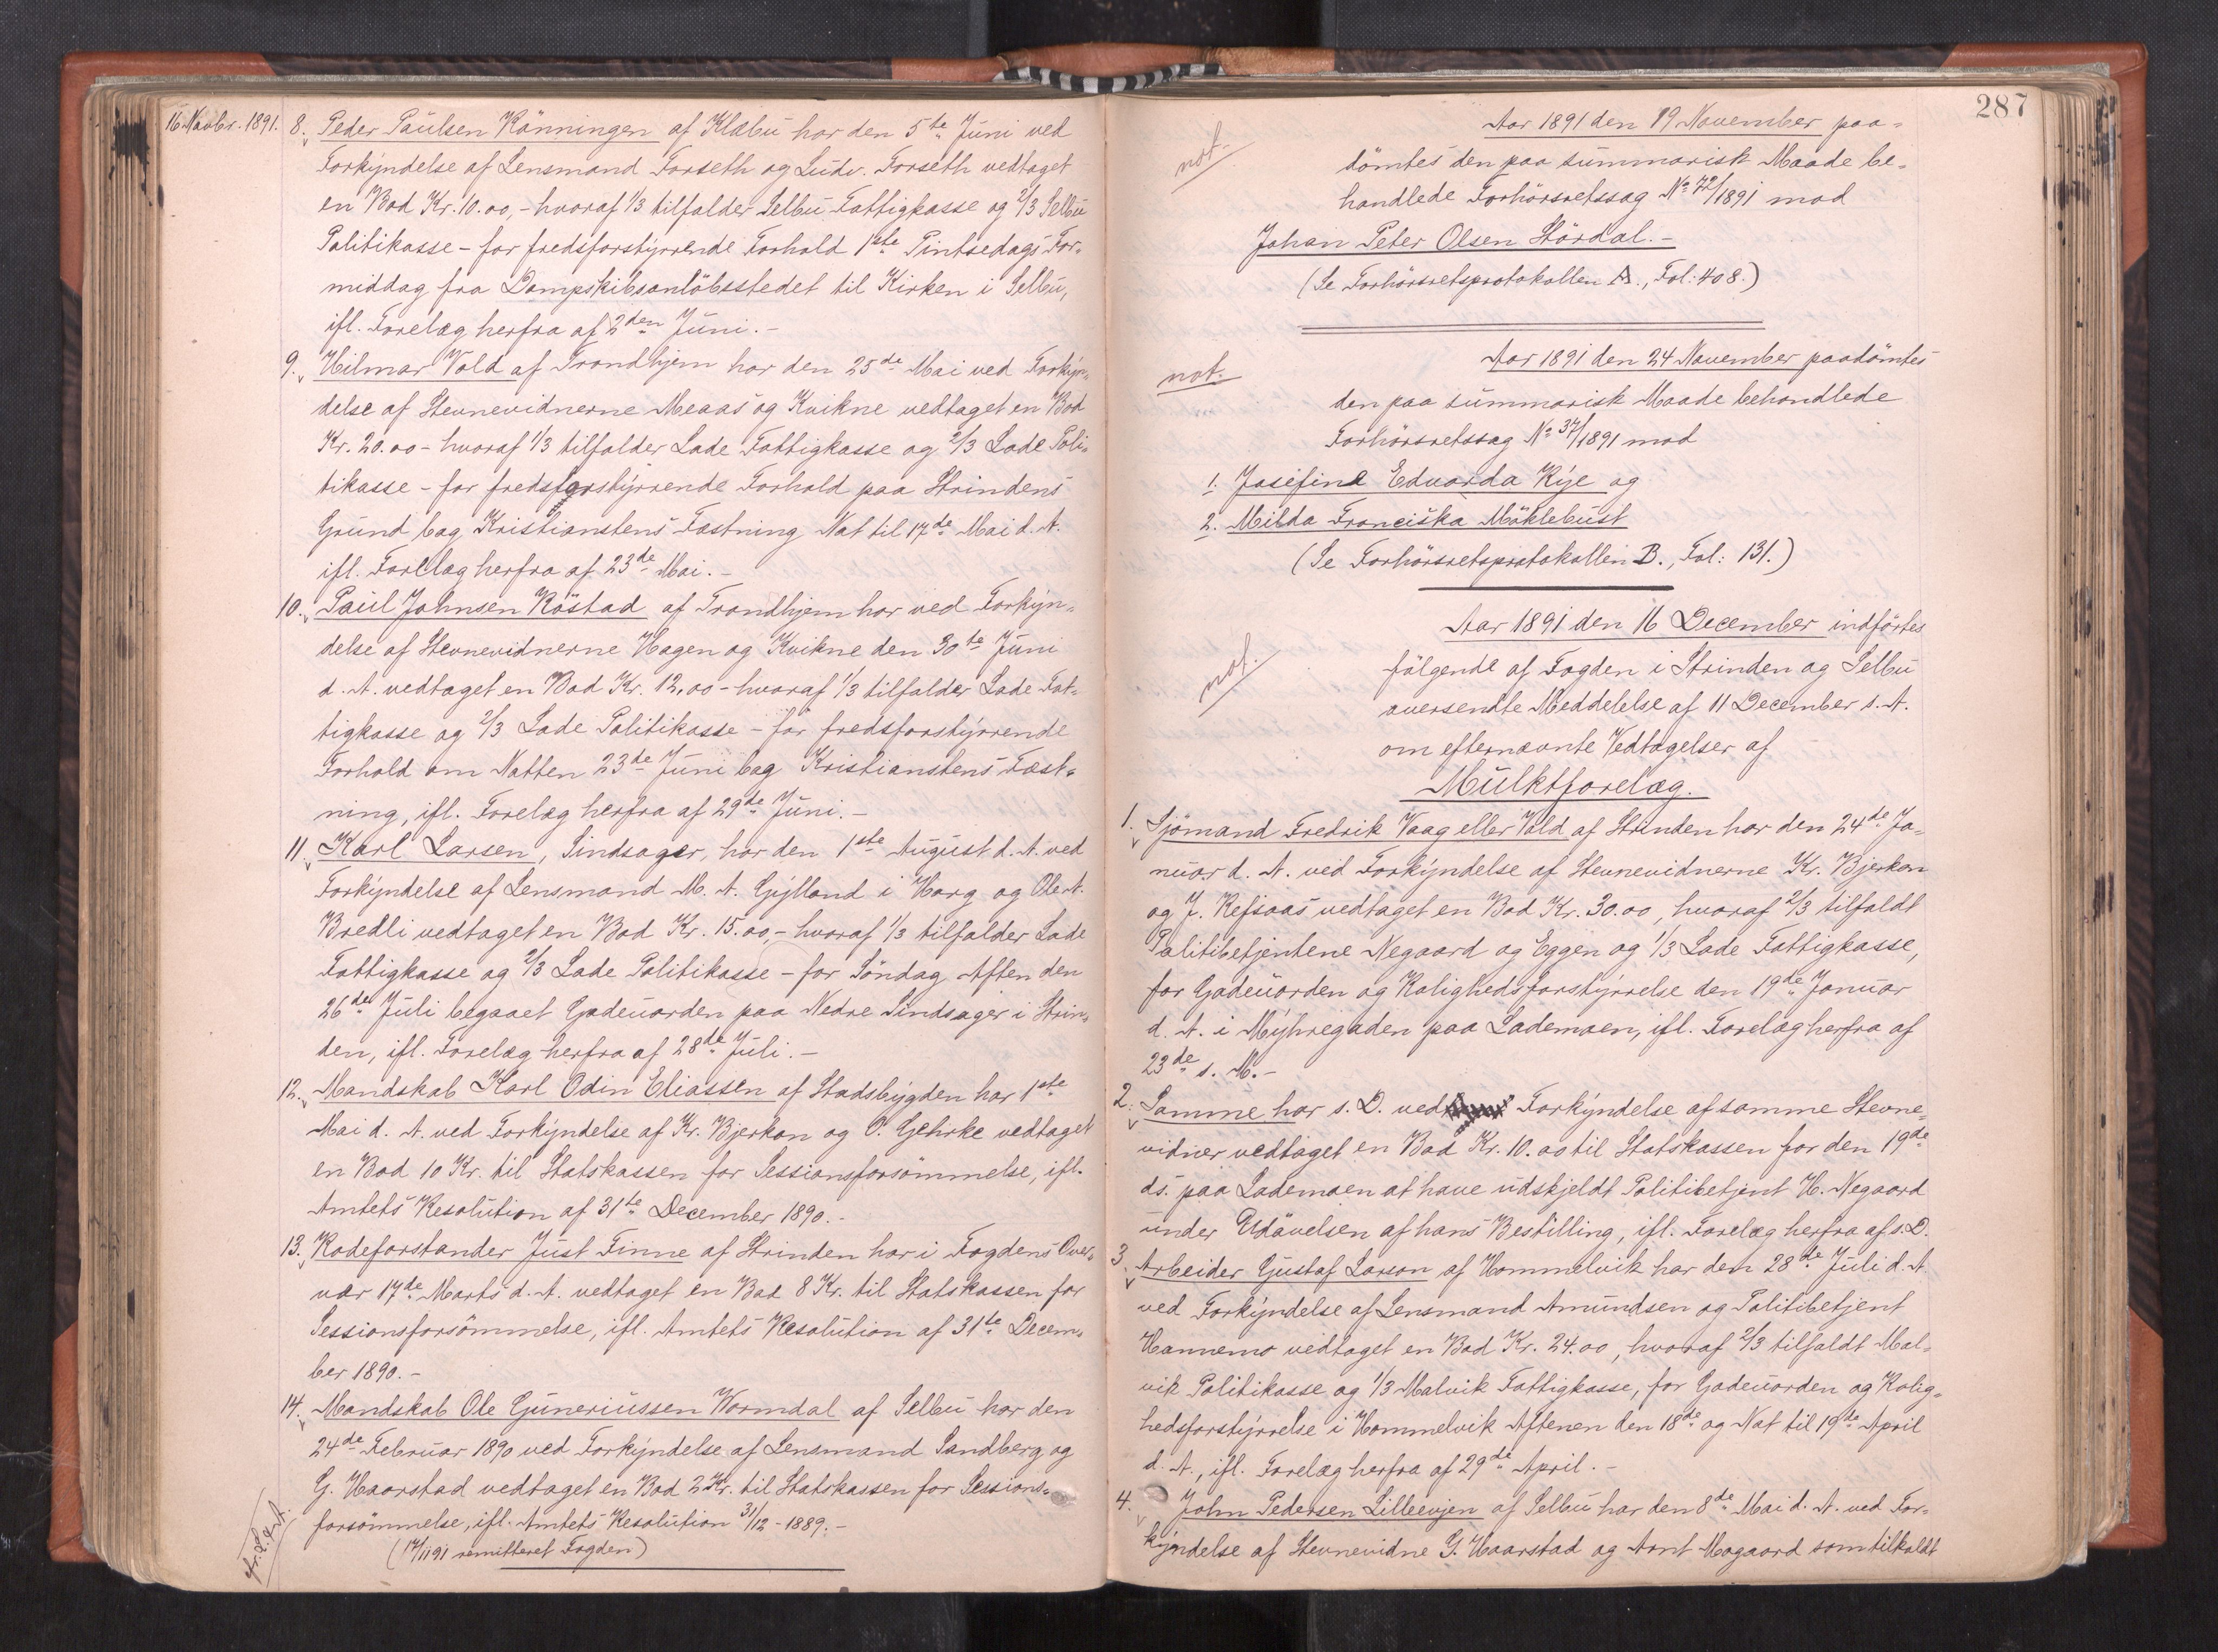 16 Novbr. 1891.
8. Peder Paulsen Rönningen af Klæbu har den 5te Juni ved
Forkyndelse af Lensmand Forseth og Ludv. Forseth vedtaget
en Bod Kr. 10.00,- hvoraf 1/3 tilfalder Selbu Fattigkasse og 2/3 Selbu
Politikasse - for fredsforstyrrende Forhold 1ste Pintsedags For-
middag fra Dampskibsanløbsstedet til Kirken i Selbu,
ifl. Forelæg herfra af 2den Juni. -
9. Hilmar Vold af Trondhjem har den 25de Mai ved Forkyn-
delse af Stevnevidnerne Meaas og Kvikne vedtaget en Bod
Kr. 20.00 - hvoraf 1/3 tilfalder Lade Fattigkasse og 2/3 Lade Poli-
tikasse - for fredsforstyrrende Forhold paa Strindens
Grund bag Kristianstens Fæstning Nat til 17de Mai d. A.
ifl. Forelæg herfra af 23de Mai. -
10. Paul Johnsen Röstad af Trondhjem har ved Forkyn-
delse af Stevnevidnerne Hagen og Kvikne den 30te Juni
d. A. vedtaget en Bod Kr. 12.00 - hvoraf 1/3 tilfalder Lade Fat-
tigkasse og 2/3 Lade Politikasse - for fredsforstyrrende
Forhold om Natten 23de Juni bag Kristianstens Fæst-
ning, ifl. Forelæg herfra af 29de Juni. -
11. Karl Larsen, Sindsager, har den 1ste August d. A. ved
Forkyndelse af Lensmand M. A. Gylland i Horg og Ole A.
Bredli vedtaget en Bod Kr. 15.00,- hvoraf 1/3 tilfalder Lade
Fattigkasse og 2/3 Lade Politikasse - for Söndag Aften den
26de Juli begaaet Gadeuorden paa Nedre Sindsager i Strin-
den, ifl. Forelæg herfra af 28de Juli. -
12. Mandskab Karl Odin Eliassen af Stadsbygden har 1ste
Mai d. A. ved Forkyndelse af Kr. Bjerkan og O. Gehrke vedtaget
en Bod 10 Kr. til Statskassen for Sessionsforsömmelse, ifl.
Amtets Resolution af 31te December 1890. -
13. Rodeforstander Just Finne af Strinden har i Fogdens Over-
vær 17de Marts d. A. vedtaget en Bod 8 Kr. til Statskassen for
Sessionsforsömmelse, ifl. Amtets Resolution af 31te Decem-
ber 1890. -
14. Mandskab Ole Guneriussen Wormdal af Selbu har den
24de Februar 1890 ved Forkyndelse af Lensmand Sandberg og
G. Haarstad vedtaget en Bod 2 Kr. til Statskassen for Sessions-
forsömmelse, ifl. Amtets Resolution 31/12 - 1889. -
(17/11 91 remitteret Fogden)
287
not.
Aar 1891 den 19 November paa-
dömtes den paa summarisk Maade be-
handlede Forhörsretssag No 72/1891 mod
Johan Peter Olsen Stördal. -
(Se Forhörsretsprotokollen A., Fol: 408.)
not.
Aar 1891 den 24 November paadömtes
den paa summarisk Maade behandlede
Forhörsretssag No 37/1891 mod
1. Josefine Edvarda Rye og
2. Milda Franciska Möklebust
(Se Forhörsretsprotokollen B., Fol: 131.)
not.
Aar 1891 den 16 December indförtes
fölgende af Fogden i Strinden og Selbu
oversendte Meddelelse af 11 December s. A.
om efternævnte Vedtagelser af
Mulktforelæg.
1. Sjömand Fredrik Vaag eller Vold af Strinden har den 24de Ja-
nuar d. A. ved Forkyndelse af Stevnevidnerne Kr. Bjerkan
og J. Refsaas vedtaget en Bod Kr. 30.00, hvoraf 2/3 tilfaldt
Politibetjentene Negaard og Eggen og 1/3 Lade Fattigkasse,
for Gadeuorden og Rolighedsforstyrrelse den 19de Januar
d. A. i Myhregaden paa Lademoen, ifl. Forelæg herfra af
23de s. M. -
2. Samme har s. D. ved Forkyndelse af samme Stevne-
vidner vedtaget en Bod Kr. 10.00 til Statskassen for den 19de
ds. paa Lademoen at have udskjeldt Politibetjent H. Negaard
under Udövelsen af hans Bestilling, ifl. Forelæg herfra af s. D.
3. Arbeider Gustaf Larson af Hommelvik har den 28de Juli d. A.
ved Forkyndelse af Lensmand Amundsen og Politibetjent
Hannemo vedtaget en Bod Kr. 24.00, hvoraf 2/3 tilfaldt Mal-
vik Politikasse og 1/3 Malvik Fattigkasse, for Gadeuorden og Rolig-
hedsforstyrrelse i Hommelvik Aftenen den 18de og Nat til 19de April
d. A., ifl. Forelæg herfra af 29de April. -
4. John Pedersen Lilleevjen af Selbu har den 8de Mai d. A. ved For-
kyndelse af Stevnevidne G. Haarstad og Arnt Mogaard som tilkaldt